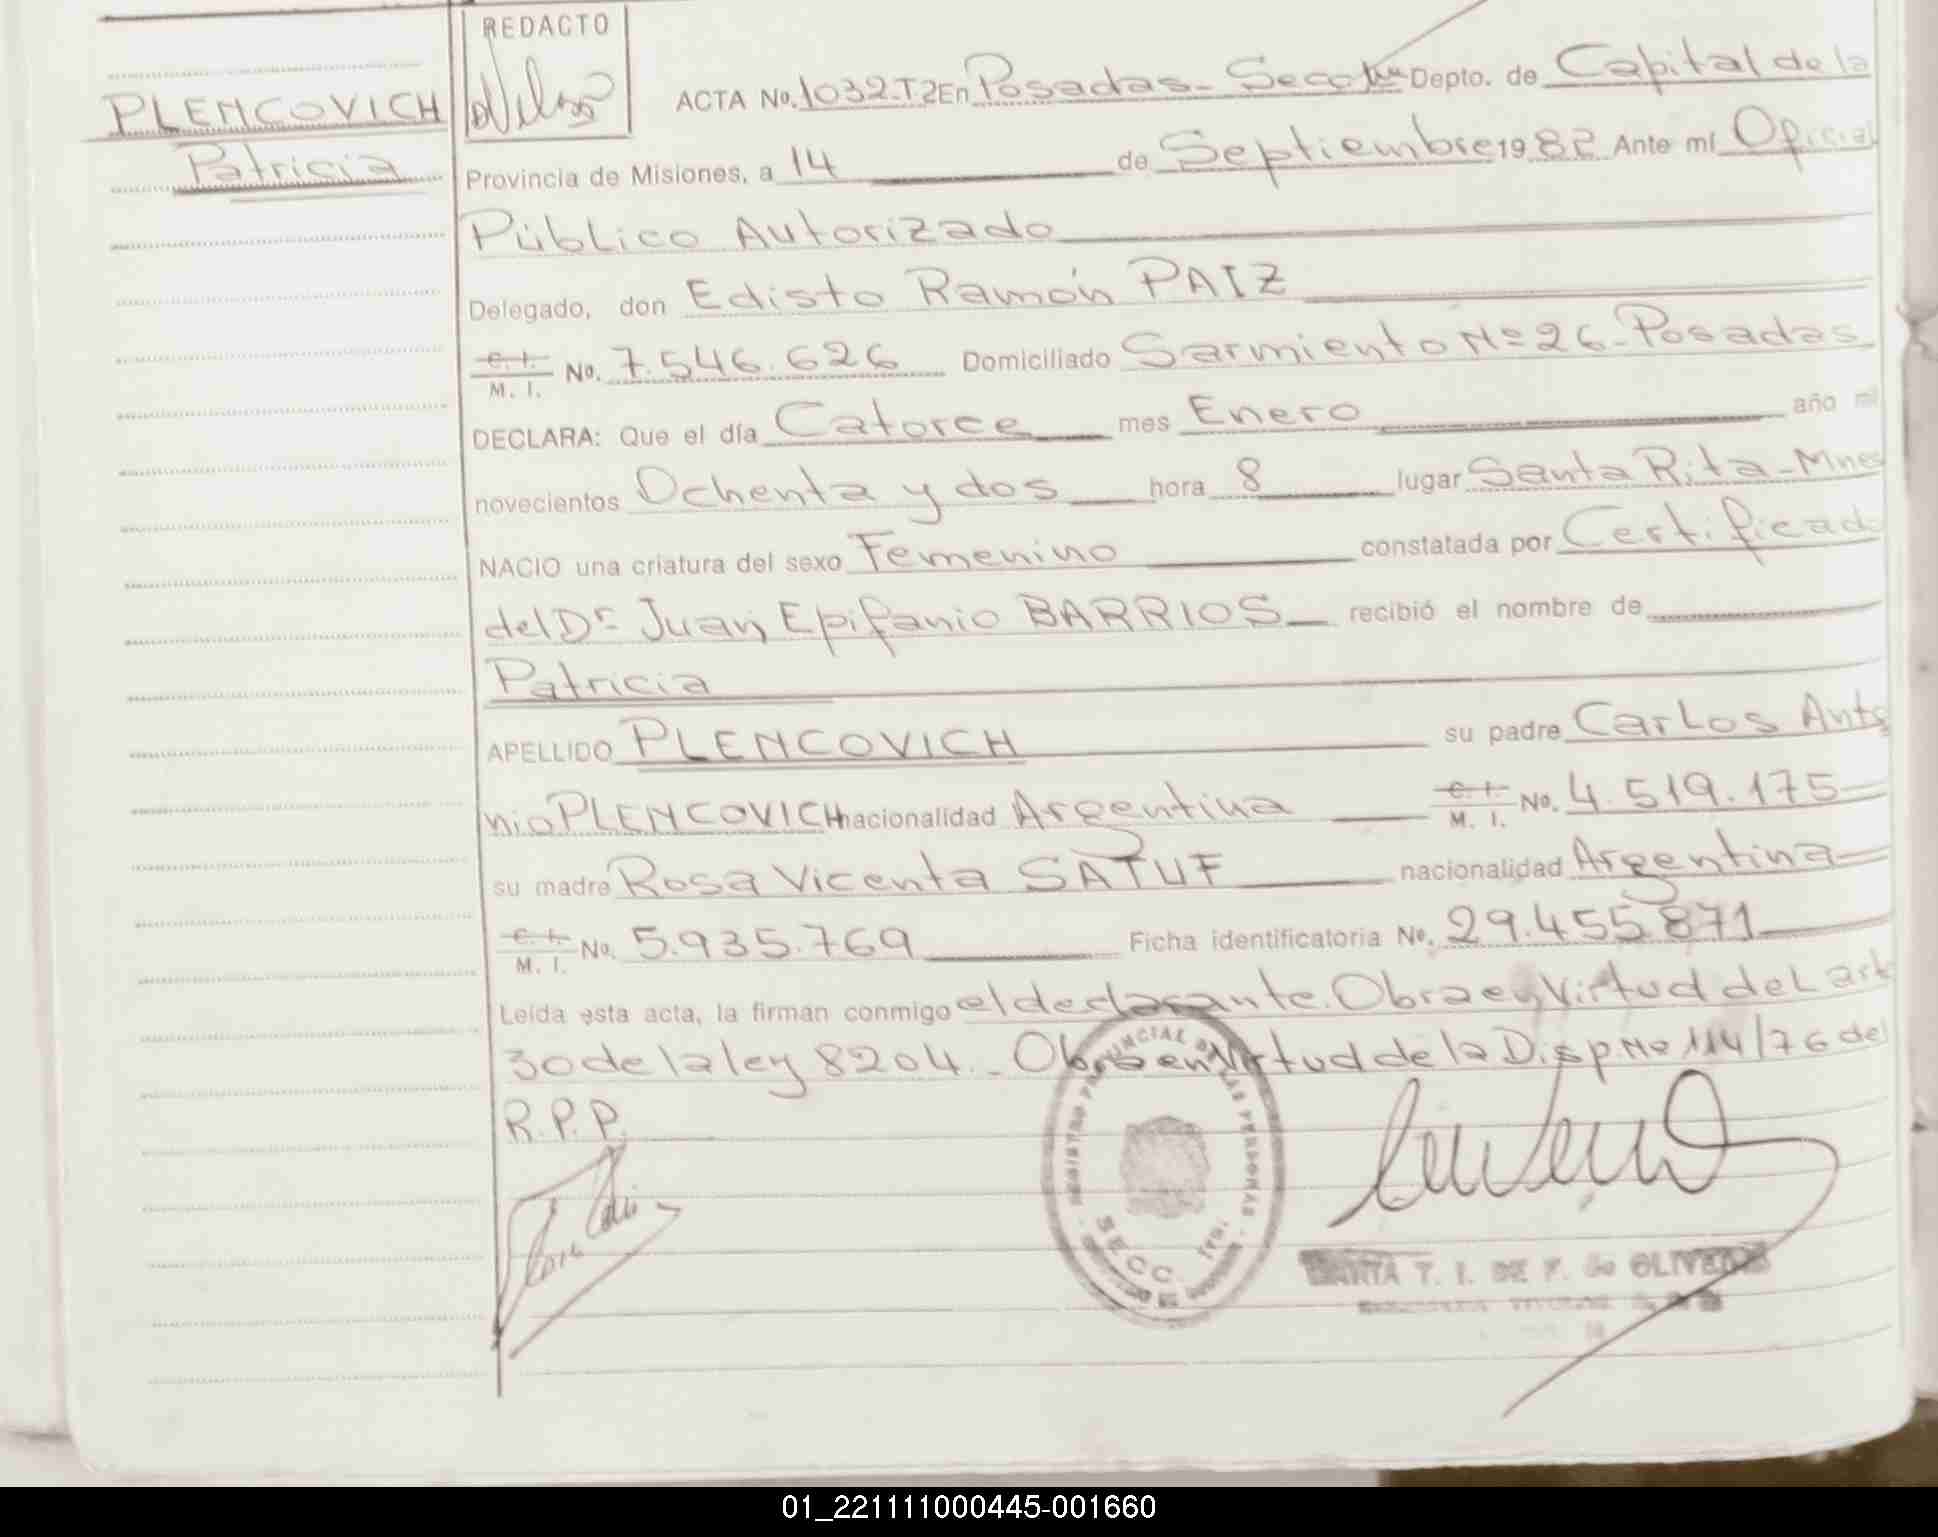 REDACTO
PLENCOVICH
Patricia
ACTA No. 1032-T2 En Posadas - Secc 1ra Depto. de Capital de la
Provincia de Misiones, a 14 de Septiembre 1982 Ante mí Oficial
Público Autorizado
Delegado, don Edisto Ramón PAIZ
C. I. / M. I. No. 7.546.626 Domiciliado Sarmiento Nº 26 - Posadas
DECLARA: Que el día Catorce mes Enero año mil
novecientos Ochenta y dos hora 8 lugar Santa Rita - Mnes
NACIO una criatura del sexo Femenino constatada por Certificado
del Dr. Juan Epifanio BARRIOS recibió el nombre de
Patricia
APELLIDO PLENCOVICH su padre Carlos Anto
nio PLENCOVICH nacionalidad Argentina C. I. / M. I. No. 4.519.175
su madre Rosa Vicenta SATUF nacionalidad Argentina
C. I. / M. I. No. 5.935.769 Ficha identificatoria No. 29.455871
Leída esta acta, la firman conmigo el declarante. Obra en Virtud del art
30 de la ley 8204. - Obra en Virtud de la Disp. Nº 114/76 del
R.P.P.
REGISTRO PROVINCIAL DE LAS PERSONAS
SECC. 1ra.
T. I. DE F. de OLIVEIRA
01_221111000445-001660